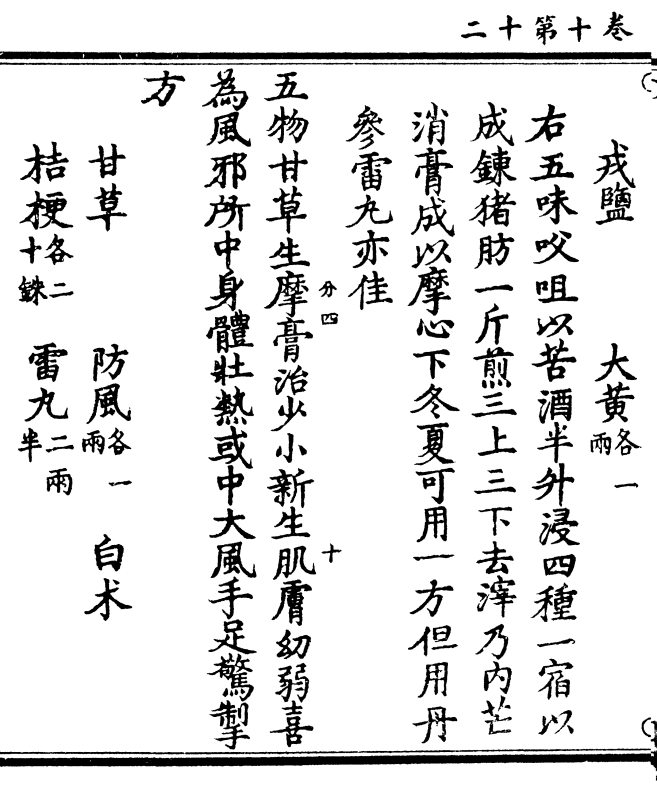 卷十第十二
戎鹽　大黃各一兩
右五味㕮咀以苦酒半升浸四種一宿以
成鍊猪肪一斤煎三上三下去滓乃內芒
消膏成以摩心下冬夏可用一方但用丹
參雷丸亦佳
分四
五物甘草生摩膏治少小新生肌膚幼弱喜
十
為風邪所中身體壯熱或中大風手足驚掣
方
甘草　防風各一兩　白朮
桔梗各二十銖　雷丸二兩半